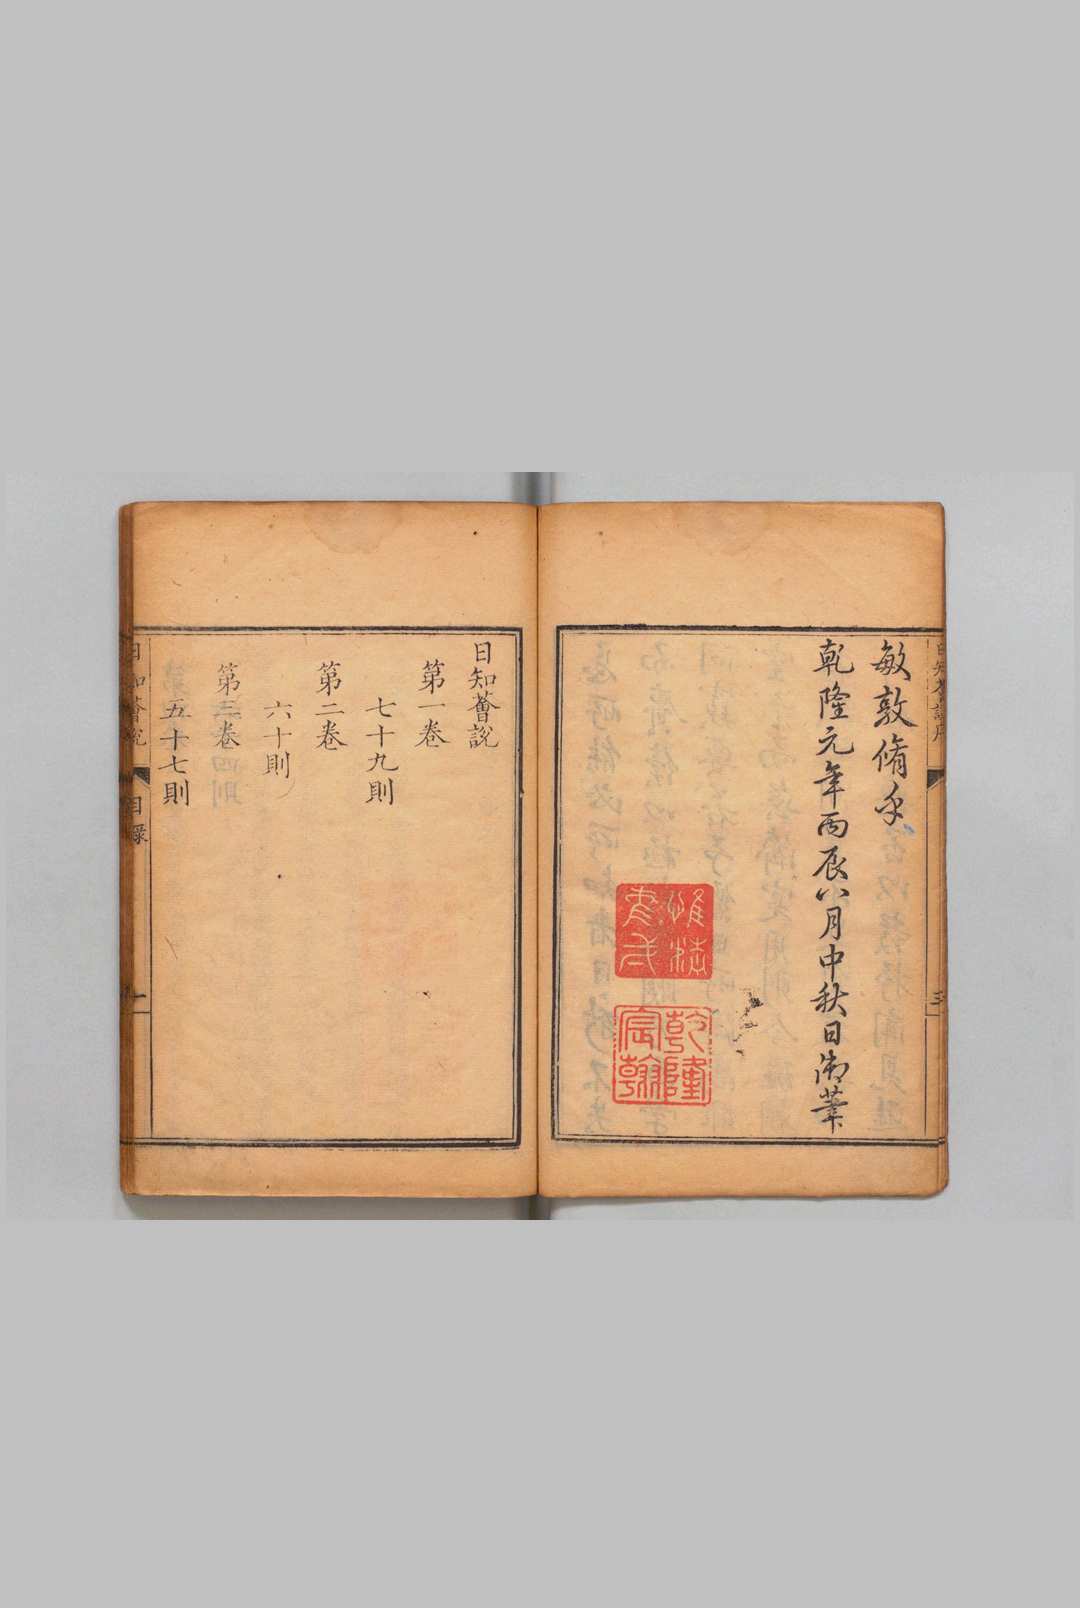 敏敦脩乎
乾隆元年丙辰八月中秋日御筆
惟精惟一
乾隆宸翰
日知薈說
第一卷
七十九則
第二卷
六十則
第三卷
五十七則
日知薈說 目錄 一